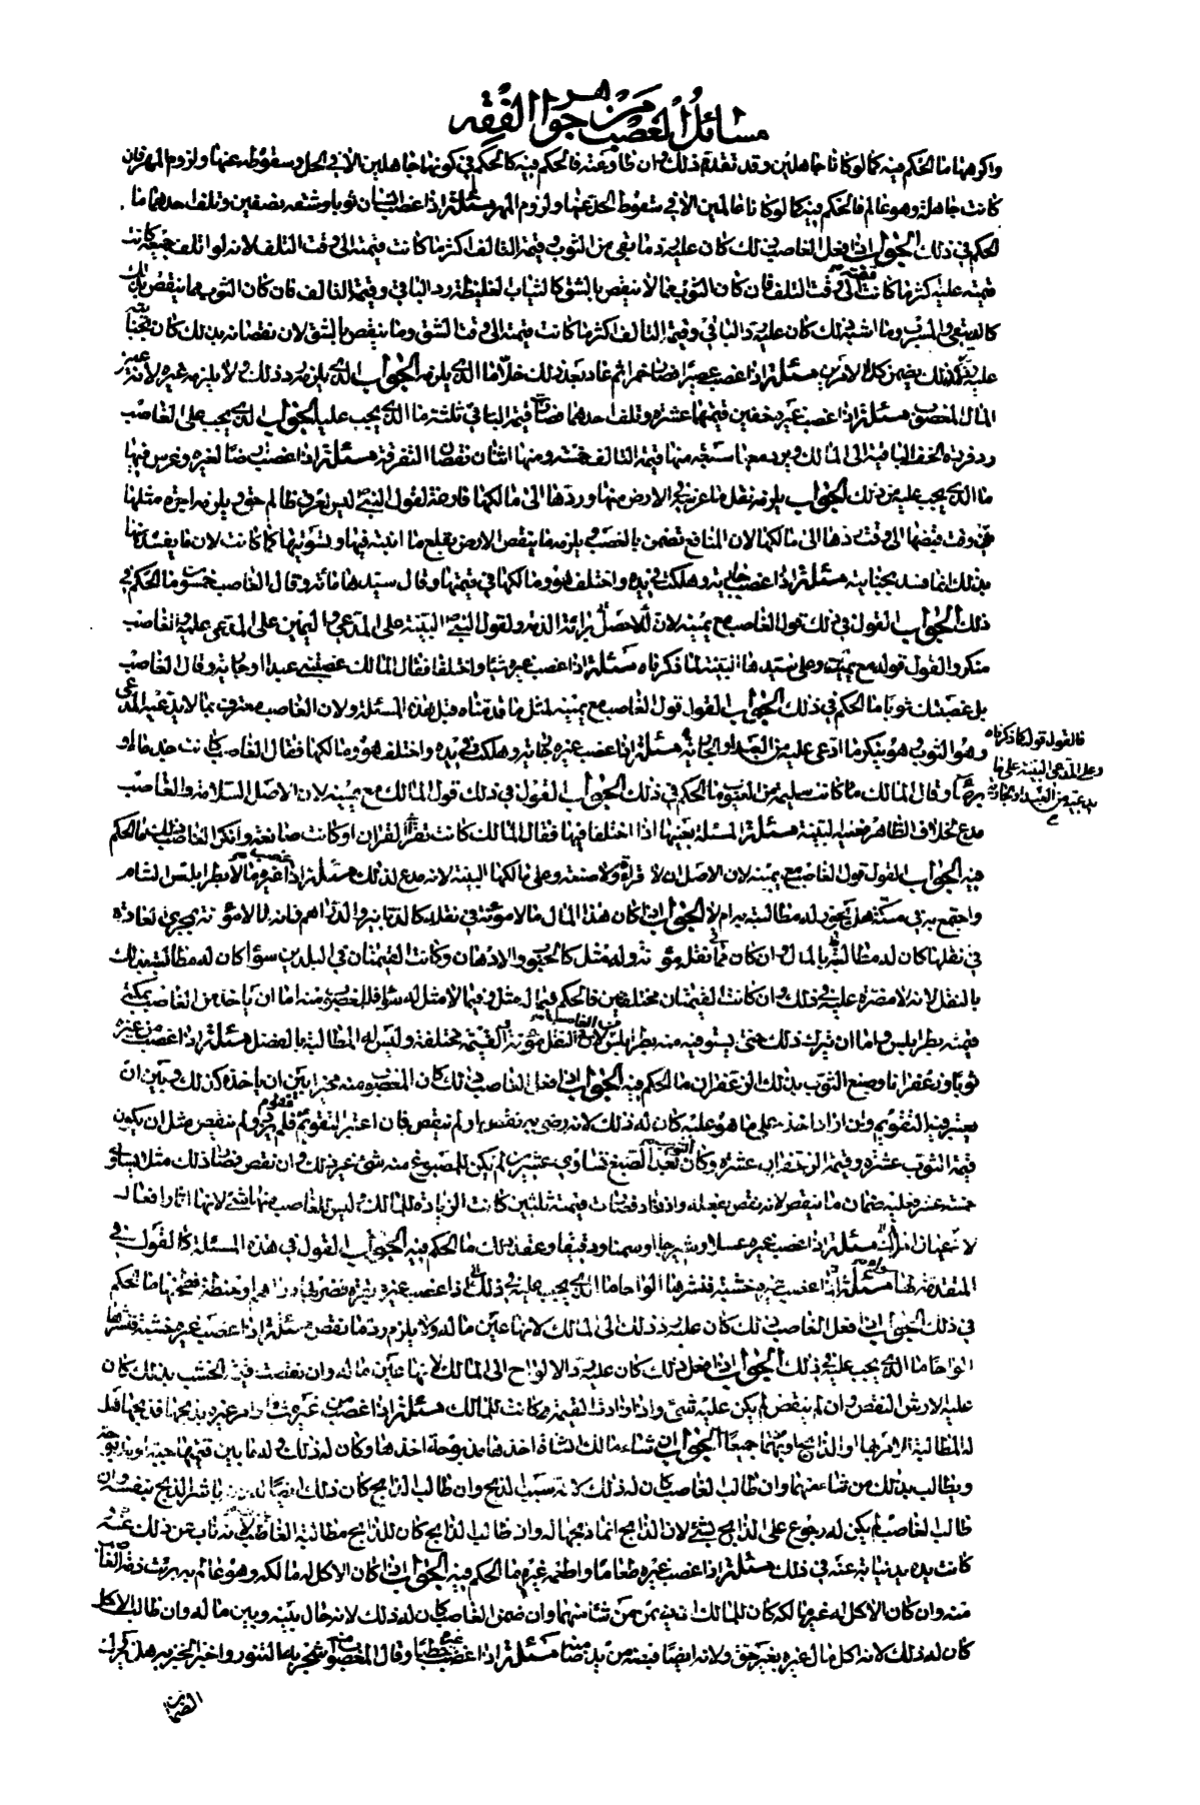 مسائل الغصب من جواهر الفقه
واكرهها ما الحكم فيه كما لو كانا جاهلين وقد تقدم ذلك وان طاوعته فالحكم فيه كالحكم في كونهما جاهلين الا في الحل وسقوطه عنها ولزوم المهر فان
كانت جاهلة وهو عالم فالحكم فيه كما لو كانا عالمين الا في سقوط الحد عنها ولزوم المهر مسئلة اذا غصب انسان ثوبا وشقه بنصفين وتلف احدهما ما
الحكم في ذلك الجواب اذا فعل الغاصب ذلك كان عليه رد ما بقي من الثوب وقيمة التالف اكثر ما كانت قيمته الى وقت التلف لانه لو اتلف جميعه كانت
قيمته عليه اكثر ما كانت الى وقت التلف فان كان الثوب مما لا ينقص بالشق كالثياب الغليظة رد الباقي وقيمة التالف فان كان الثوب مما ينقص بذلك
كالدبيقي والسرب وما اشبه ذلك كان عليه رد الباقي وقيمة التالف اكثر ما كانت قيمته الى وقت الشق وما ينقص بالشق لان نقصانه بذلك كان بجناية
عليه فكذلك يضمن كلا الامرين مسئلة اذا غصب عصيرا فصار خمرا ثم عاد بعد ذلك خلا ما الذي يلزمه الجواب الذي يلزمه رد ذلك ولا يلزمه غيره لانه عين
المال المغصوب مسئلة اذا غصب غيره خفين قيمتهما عشرة وتلف احدهما فصارت قيمة الباقي ثلثة ما الذي يجب عليه الجواب الذي يجب على الغاصب
رد فردة الخف الباقية الى المالك ويرد معها سبعة منها قيمة التالف خمسة ومنها اثنان نقصان التفرقة مسئلة اذا غصب ارضا لغيره وغرس فيها
ما الذي يجب عليه من ذلك الجواب يلزمه نقل ما غرز في الارض منها وردها الى مالكها فارغة لقول النبي ليس لعرق ظالم حق ويلزمه اجرة مثلها
من وقت قبضها الى وقت ردها الى مالكها لان المنافع تضمن بالغصب ويلزمه ما ينقص الارض بقلع ما انبته فيها وتسويتها كما كانت لان ما يفسد منها
بذلك انما فسد بجنايته مسئلة اذا غصب جارية وهلكت في يده واختلف هو ومالكها في قيمتها وقال سيدها مائة وقال الغاصب خمسون ما الحكم في
ذلك الجواب القول في ذلك قول الغاصب مع يمينه لان الاصل برائة الذمة ولقول النبي البينة على المدعي واليمين على المدعى عليه والغاصب
منكر والقول قوله مع يمينه وعلى سيدها البينة لما ذكرناه مسئلة اذا غصب غيره شيئا واختلفا فقال المالك غصبتني عبدا او جارية وقال الغاصب
بل غصبتك ثوبا ما الحكم في ذلك الجواب القول قول الغاصب مع يمينه لمثل ما قدمناه قبل هذه المسئلة ولان الغاصب معترف بما لا يدعيه المدعي
وهو الثوب وهو ينكر ما ادعي عليه من العبد او الجارية مسئلة اذا غصب غيره جارية وهلكت في يده واختلف هو ومالكها فقال الغاصب كانت جذماء او
فالقول قوله كما ذكرناه
وعلى المدعي البينة على ما
يدعيه من العبد او الجارية
برصاء وقال المالك ما كانت سليمة من العيوب ما الحكم في ذلك الجواب القول في ذلك قول المالك مع يمينه لان الاصل السلامة والغاصب
مدع لخلاف الظاهر فعليه البينة مسئلة المسئلة بعينها اذا اختلفا فيها فقال المالك كانت تقرأ القران او كانت صانعة وانكر الغاصب ذلك ما الحكم
فيه الجواب القول قول الغاصب مع يمينه لان الاصل ان لا قراءة ولا صنعة وعلى مالكها البينة لانه مدع لذلك مسئلة اذا غصب غيره مالا بطرابلس الشام
واجتمع به في مكة هل يجوز له مطالبته به ام لا الجواب اذا كان هذا المال مما لا مؤنة في نقله كالدنانير والدراهم فانه لا مؤنة تجري العادة
في نقلها كان له مطالبته بالمال وان كان مما في نقله مؤنة وله مثل كالحبوب والادهان وكانت القيمتان في البلدين سواء كان له مطالبته بذلك
بالنقل لانه لا مضرة عليه في ذلك وان كانت القيمتان مختلفين فالحكم فيما له مثل وفيما لا مثل له سواء فللمغصوب منه اما ان يأخذ من الغاصب بمكة
قيمته بطرابلس واما ان يترك ذلك حتى يستوفيه منه بطرابلس لان في النقل مؤنة والقيمة مختلفة وليس له المطالبة بالفضل مسئلة اذا غصب من غيره
ثوبا وزعفرانا وصبغ الثوب بذلك الزعفران ما الحكم فيه الجواب اذا فعل الغاصب ذلك كان المغصوب منه مخيرا بين ان يأخذه كذلك وبين ان
يعتبر فيه التقويم فان اراد اخذه على ما هو عليه كان له ذلك لانه رضي به نقص او لم ينقص فان اعتبر التقويم قوم فلم يزد ولم ينقص مثل ان يكون
قيمة الثوب عشرة وقيمة الزعفران عشرة وكان الثوب بعد الصبغ تساوي عشرين لم يكن للمصبوغ منه شيء غير ذلك وان نقص فصار ذلك مثل يساوي
خمسة عشر فعليه ضمان ما ينقص لانه نقص بفعله واذا زاد فصارت قيمته ثلثين كانت الزيادة للمالك ليس للغاصب فيها شيء لانها اثار افعال
لا عيان اموال مسئلة اذا غصب غيره عسلا وشيرجا او سمنا ودقيقا وعقد ذلك ما الحكم فيه الجواب القول في هذه المسئلة كالقول في
المتقدمة لها مسئلة اذا غصب غيره خشبة فنشرها الواحا ما الذي يجب عليه في ذلك اذا غصب غيره نقرة فضربها دراهم او حنطة فطحنها ما الحكم
في ذلك الجواب اذا فعل الغاصب ذلك كان عليه رد ذلك الى المالك لانها عين ماله ولا يلزم رد ما نقص مسئلة اذا غصب غيره خشبة فنشرها
الواحا ما الذي يجب عليه في ذلك الجواب اذا فعل ذلك كان عليه رد الالواح الى المالك لانها عين ماله وان نقصت قيمة الخشب بذلك كان
عليه الارش لنقص وان لم ينقص لم يكن عليه شيء واذا زادت القيمة كانت للمالك مسئلة اذا غصب غيره شاة وامر غيره بذبحها فذبحها هل
له المطالبة الامر بها او الذابح او بهما جميعا الجواب ان شاء مالك الشاة اخذها مذبوحة اخذها وكان له ذلك وله ما بين قيمتها حية ومذبوحة
ويطالب بذلك من شاء منهما وان طالب الغاصب كان له ذلك لانه سبب الذبح وان طالب الذابح كان ذلك ايضا لانه باشر الذبح بنفسه وان
طالب الغاصب لم يكن له رجوع على الذابح بشيء لان الذابح انما ذبحها له وان طالب الذابح كان للذابح مطالبة الغاصب لانه ناب عن ذلك عنه
كانت يده يد نيابة عنه في ذلك مسئلة اذا غصب غيره طعاما واطعمه غيره ما الحكم فيه الجواب اذا كان الاكل له مالكه وهو عالم به برئت ذمة الغاصب
منه وان كان الاكل له غير مالكه كان للمالك ان يضمن من شاء منهما وان ضمن الغاصب كان له ذلك لانه حال بينه وبين ماله وان طالب الاكل
كان له ذلك لانه اكل مال غيره بغير حق ولانه ايضا قبضه من يد ضامنة مسئلة اذا غصب غيره حطبا وقال المغصوب منه اسجر به التنور واخبز الخبز به هل يخرج
الضمان